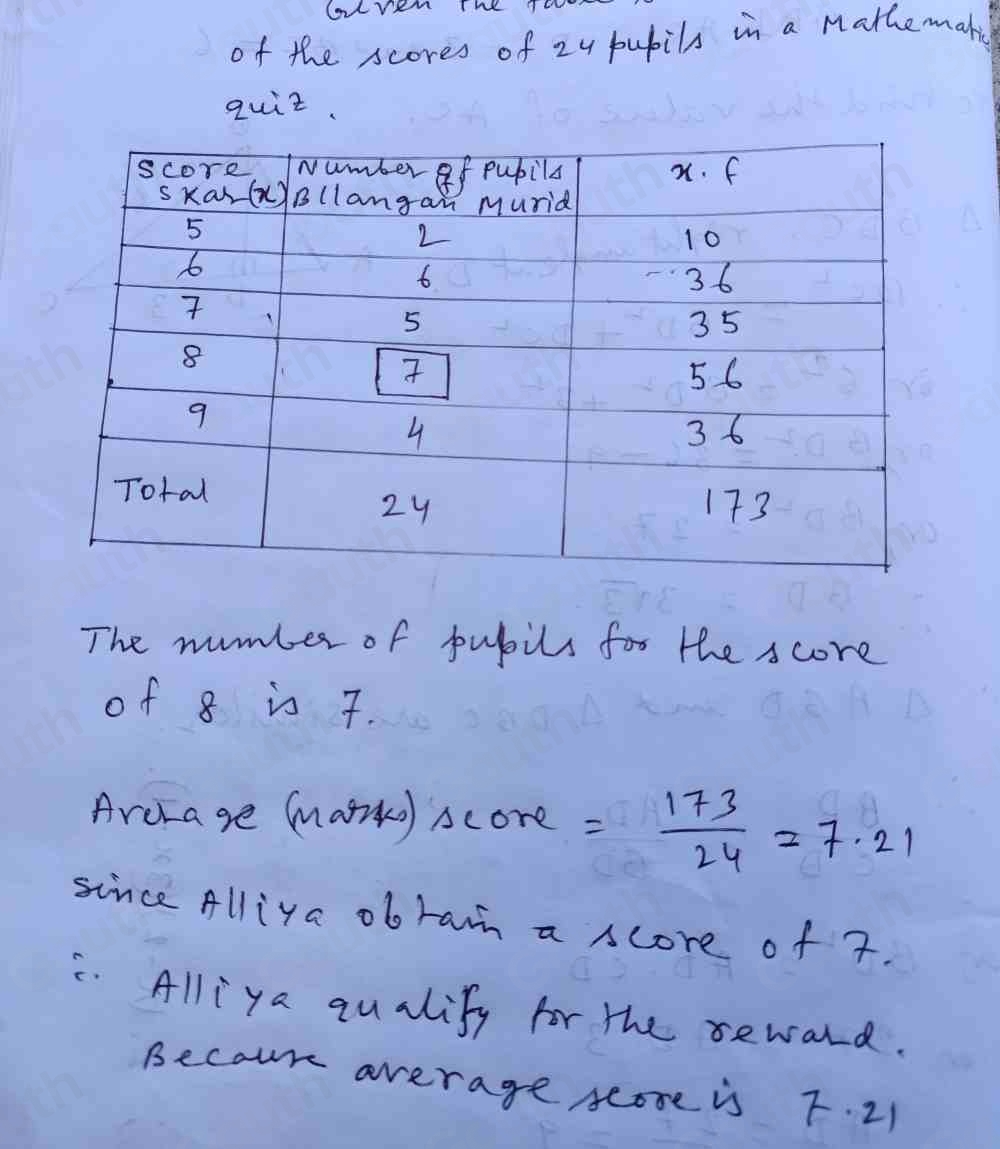 Given the
of the scores of 24 pupils in a Mathematic
quiz.
Score Number of Pupils x.f
Skar(x) Bllangan Murid
5 2 10
6 6 36
7 5 35
8 7 56
9 4 36
Total 24 173
The number of pupils for the score
of 8 is 7.
Average (marks) score = 173/24 = 7.21
since Alliya obtain a score of 7.
∴ Alliya qualify for the reward.
Because average score is 7.21